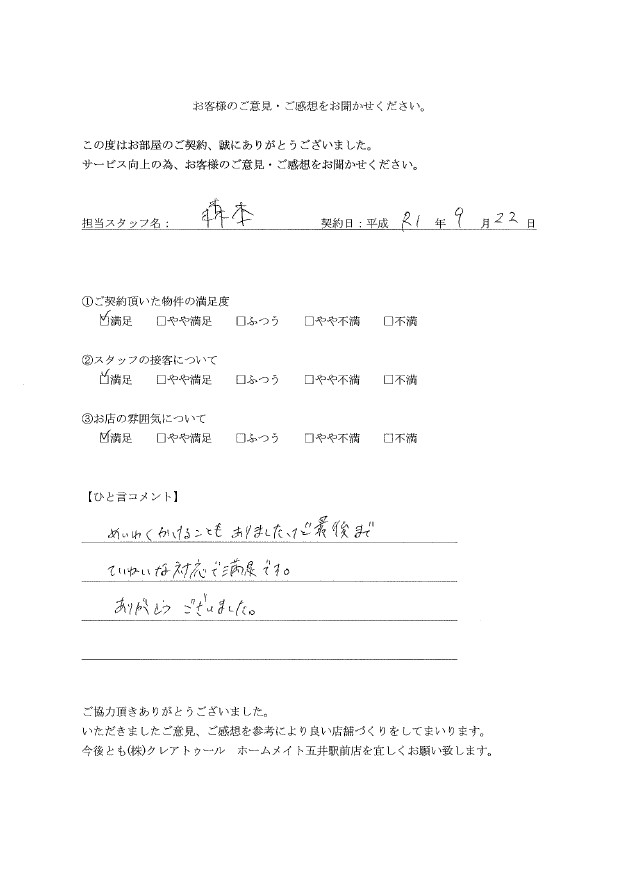 お客様のご意見・ご感想をお聞かせください。
この度はお部屋のご契約、誠にありがとうございました。
サービス向上の為、お客様のご意見・ご感想をお聞かせください。
担当スタッフ名： 契約日：平成 21 年 9 月 22 日
①ご契約頂いた物件の満足度
☑満足 □やや満足 □ふつう □やや不満 □不満
②スタッフの接客について
☑満足 □やや満足 □ふつう □やや不満 □不満
③お店の雰囲気について
☑満足 □やや満足 □ふつう □やや不満 □不満
【ひと言コメント】
めいわくかけることも ありましたけど最後まで
ていねいな対応で満足です。
ありがとう ございました。
ご協力頂きありがとうございました。
いただきましたご意見、ご感想を参考により良い店舗づくりをしてまいります。
今後とも(株)クレアトゥール ホームメイト五井駅前店を宜しくお願い致します。